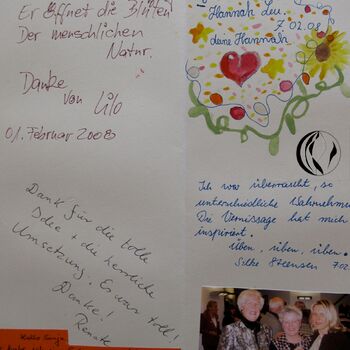 Er öffnet die Blüten
Der menschlichen
Natur.
Danke
von Lilo
01. Februar 2008
Dank für die tolle
Idee + die herrliche
Umsetzung. Es war toll!
Danke!
Renate
Hallo
Hannah Lu.
7.02.08
deine Hannah
Ich war überrascht, so
unterschiedliche Wahrnehmen
Die Vernissage hat mich
inspiriert.
üben, üben, üben.
Silke Steensen 7.02